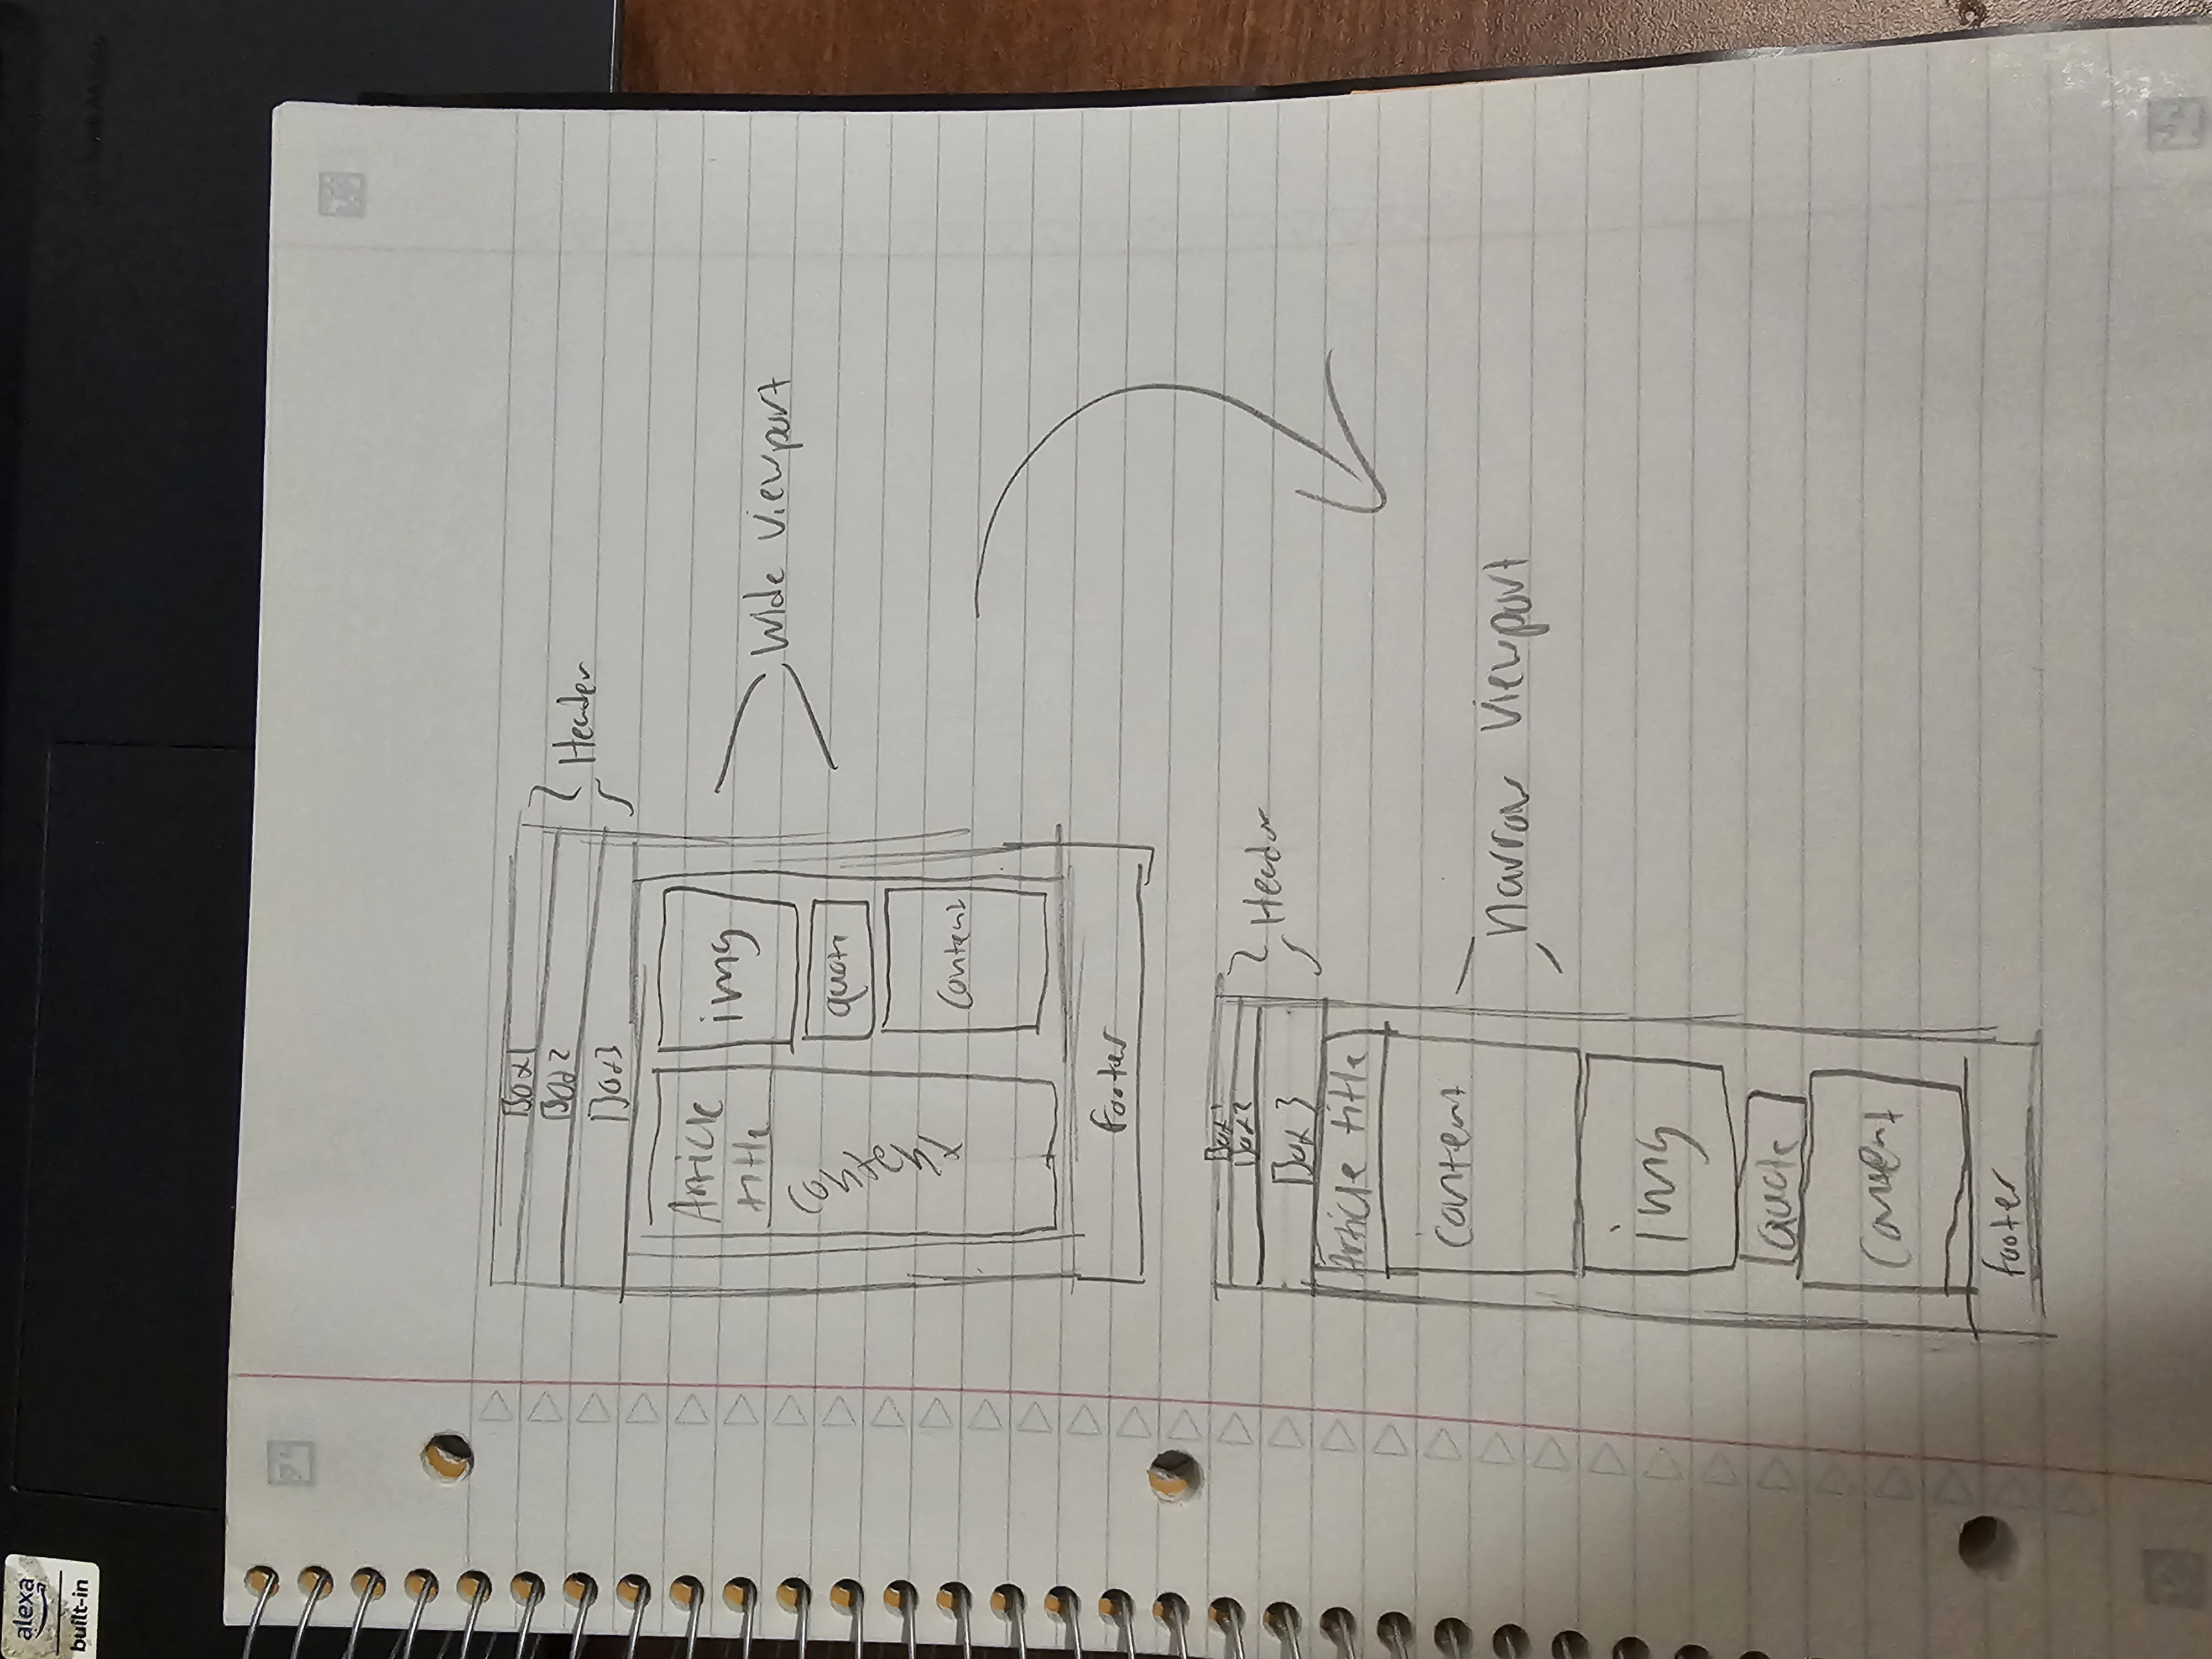 alexa
built-in
Box1
Box2
Box3
Header
Article
title
img
Content
quote
Content
Wide Viewport
footer
Box1
Box2
Box 3
Header
Article title
Content
Narrow Viewport
img
Quote
Content
footer